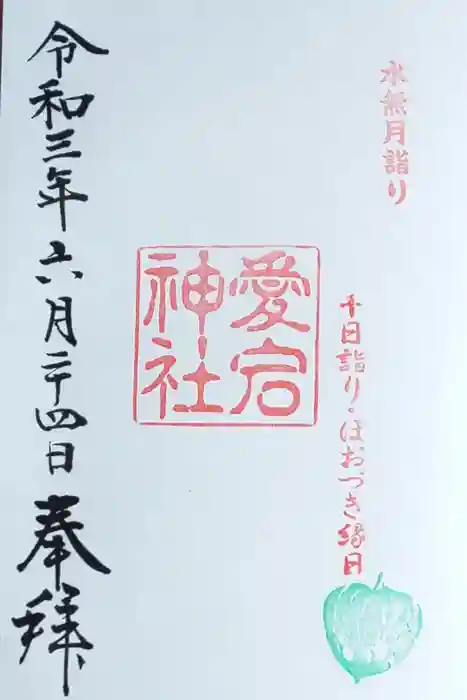 水無月詣り
千日詣り・ほおづき縁日
愛宕
神社
令和三年六月二十四日 奉拝